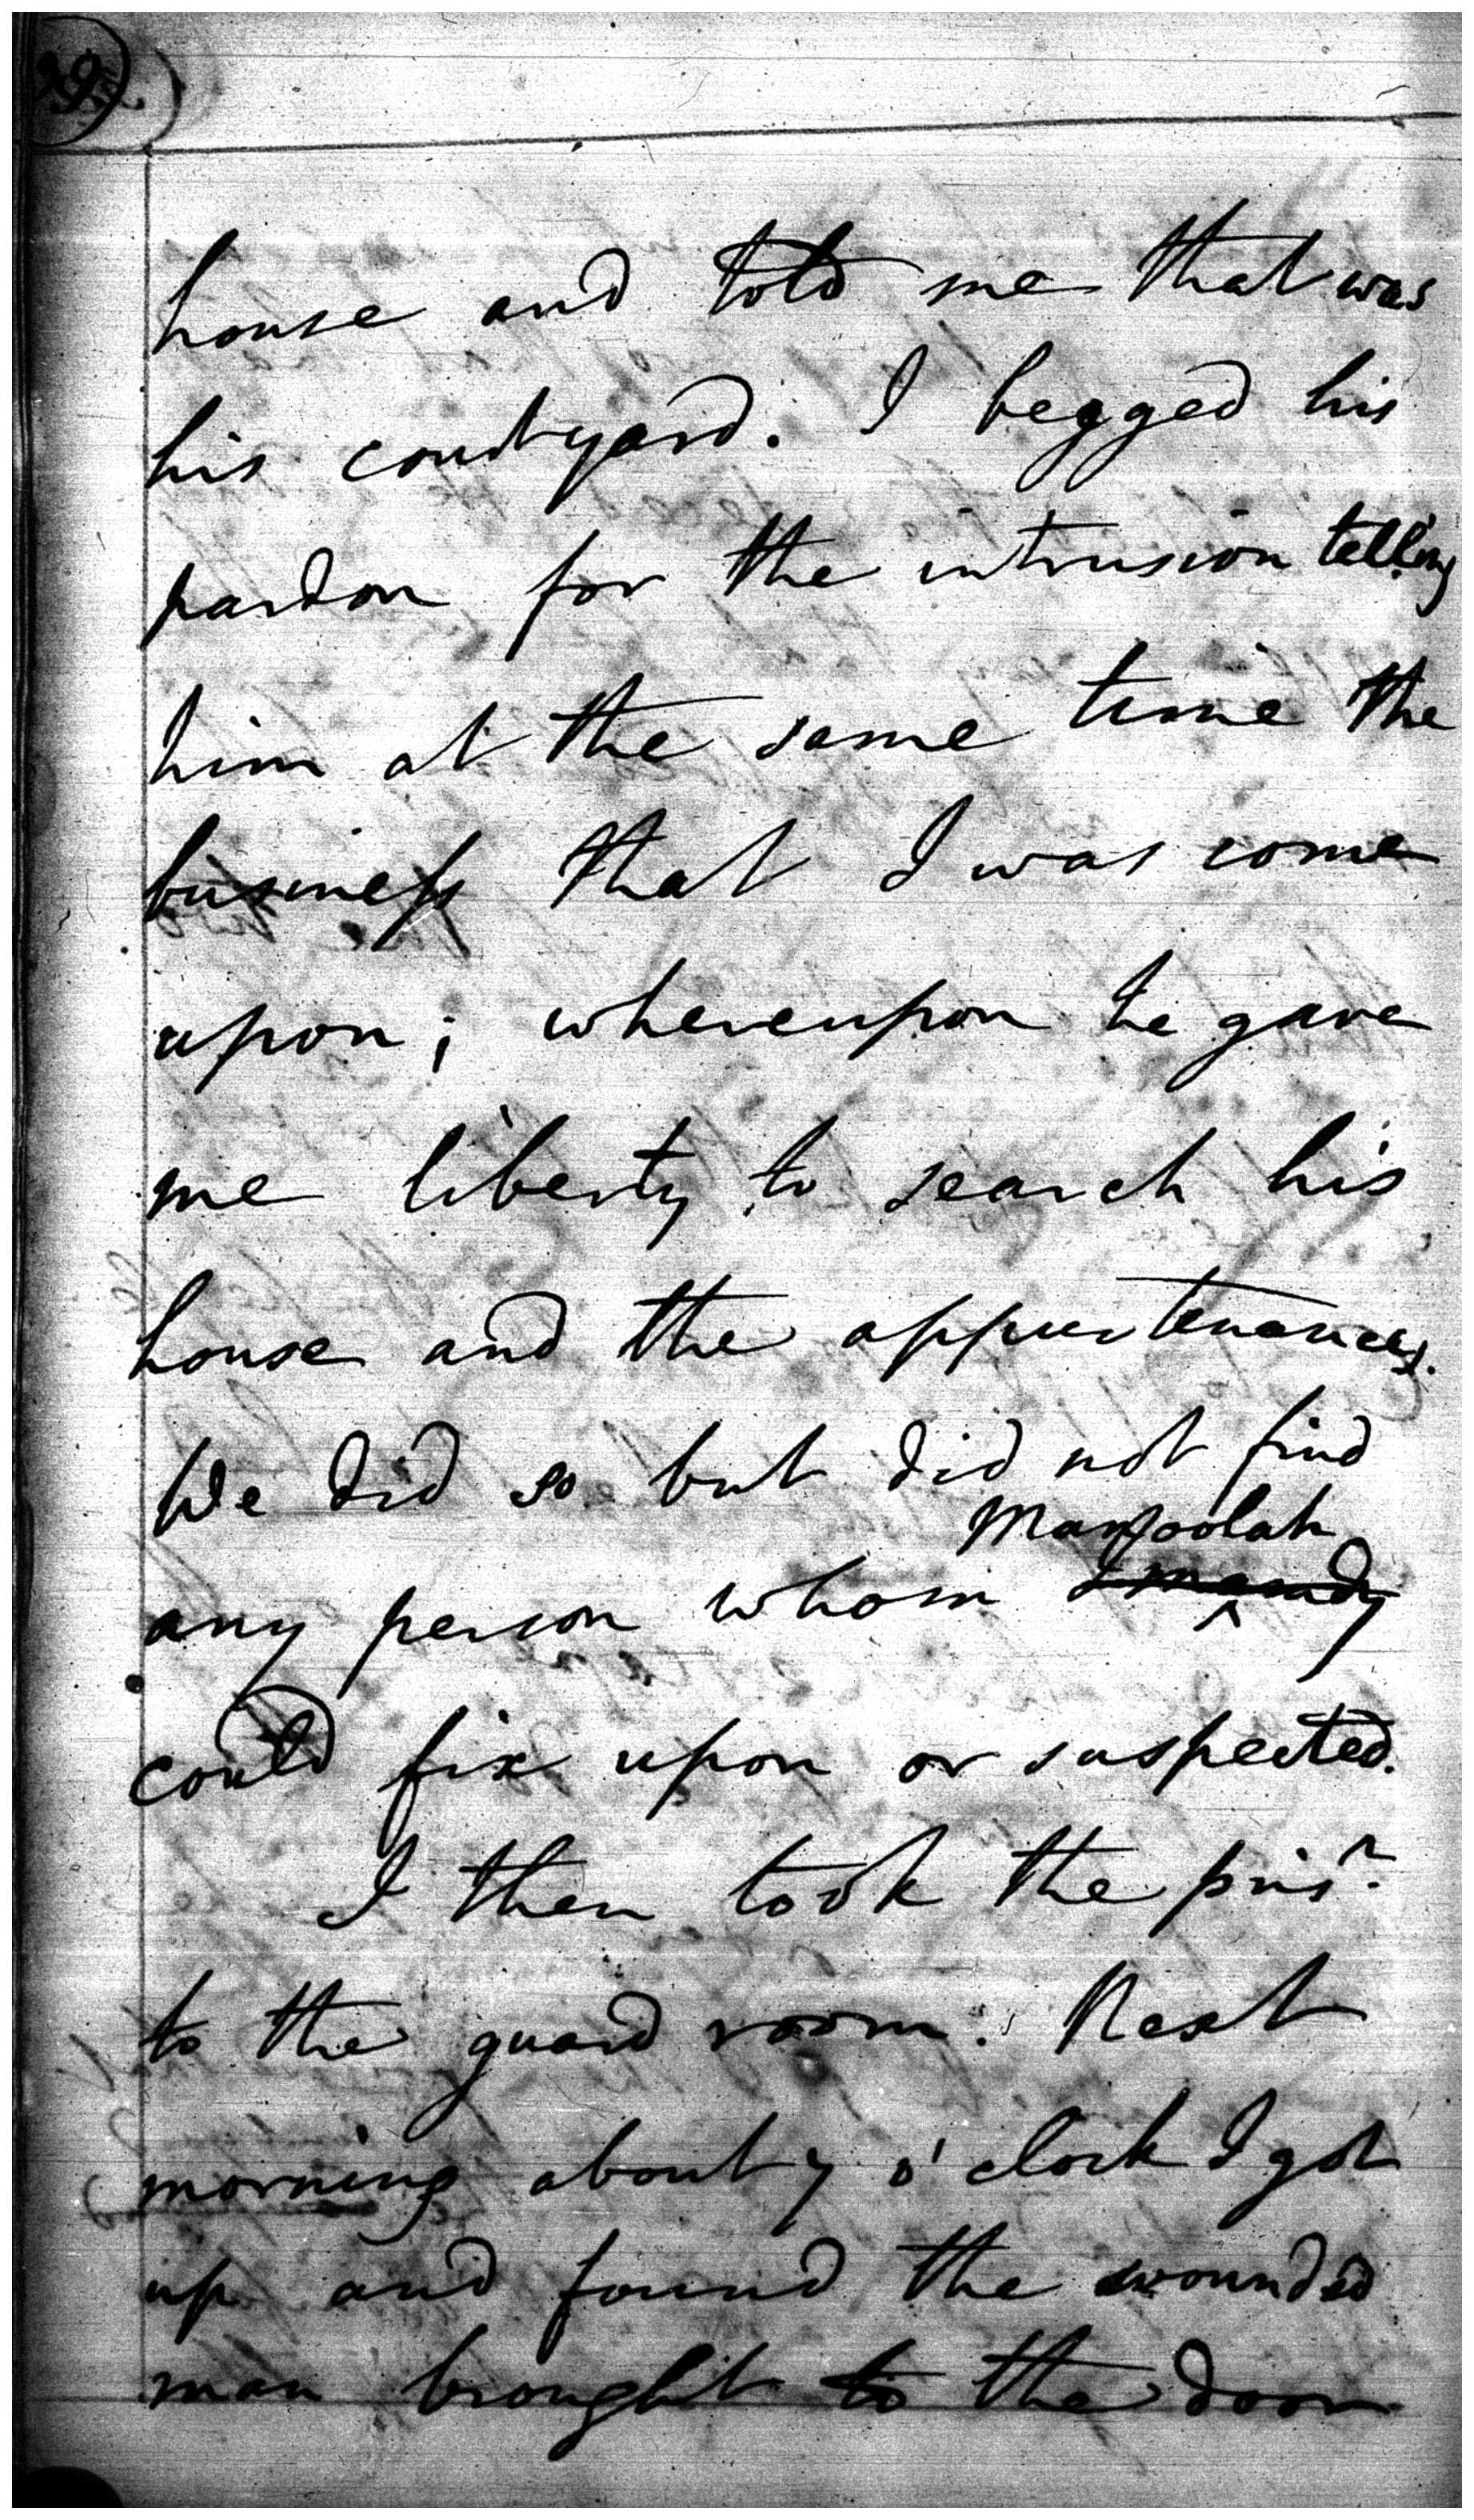 house and told me that was
his courtyard. I begged his
pardon for the intrusion telling
him at the same time the
business that I was come
upon; whereupon he gave
me liberty to search his
house and the appurtenances.
We did so but did not find
Manoolah
any person whom
could fix upon or suspected.
I then took the prisr.
to the guard room. Next
morning about 7 o'clock I got
up and found the wounded
man brought to the door